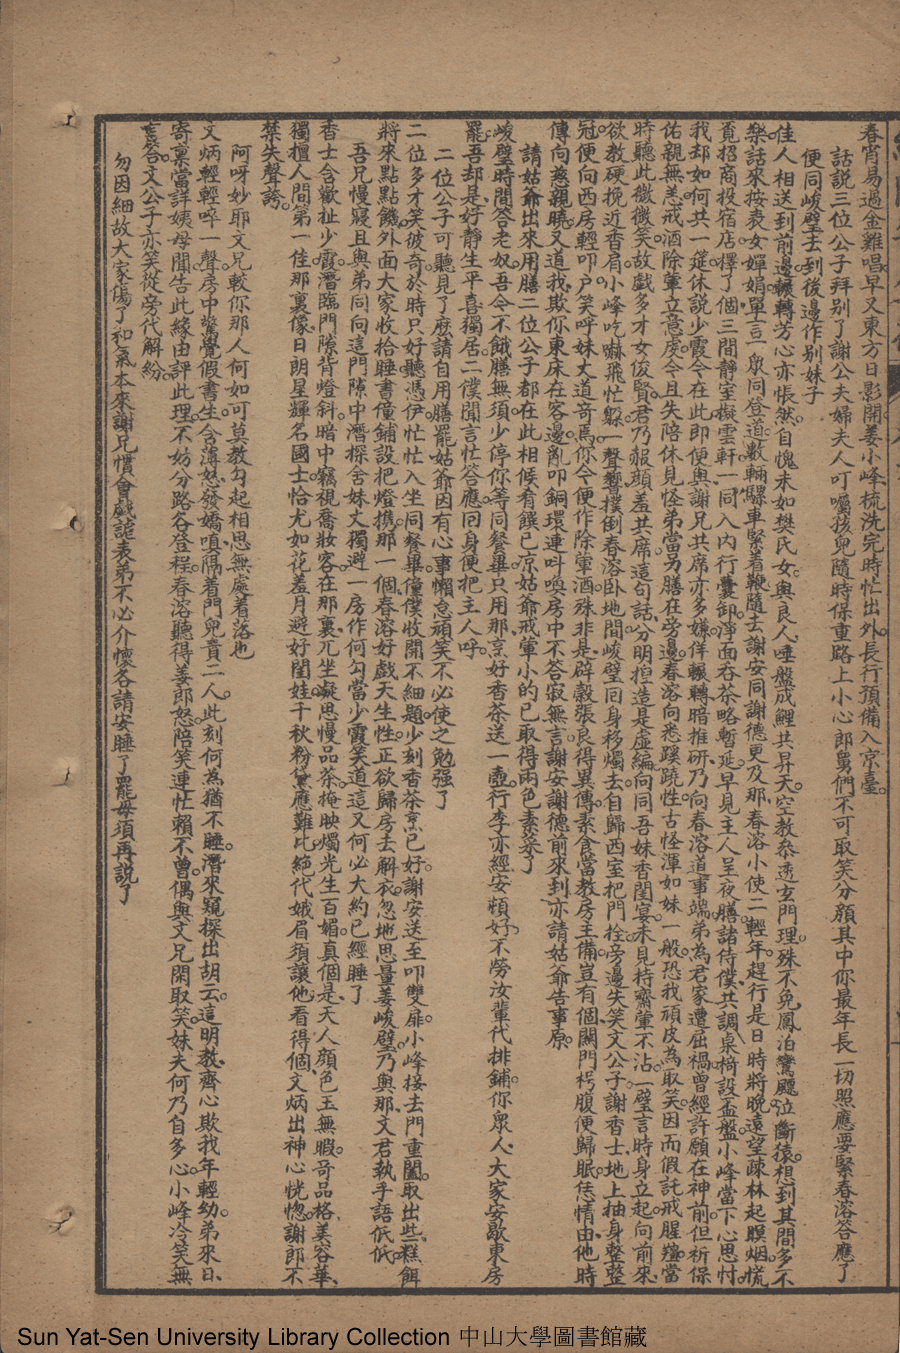 春宵易過金雞唱早又東方日影開姜小峰梳洗完時忙出外長行預備入京臺
話說三位公子拜別了謝公夫婦夫人叮囑孩兒隨時保重路上小心郎舅們不可取笑分顏其中你最年長一切照應要緊春溶答應了
便同峻壁去到後邊作別妹子
佳人相送到前邊輾轉芳心亦悵然自愧未如樊氏女與良人唾盤成鯉共昇天空教叅透玄門理殊不免鳳泊鸞飄泣斷猿想到其間多不
樂話來按表女嬋娟單言一眾同登道數輛騾車緊着鞭隨去謝安同謝德更及那春溶小使二輕年趕行是日時將晚遠望疎林起暝烟慌
覓招商投宿店擇了個三間靜室擬雲軒一同入內行囊卸淨面吞茶略暫延早見主人呈夜膳諸侍僕共調桌椅設盃盤小峰當下心思忖
我却如何共一筵休說少霞今在此即便與謝兄共席亦多嫌佯輾轉暗推研乃向春溶道事端弟為君家遭屈禍曾經許願在神前但祈保
佑親無恙戒酒除葷立意虔今且失陪休見怪弟當另膳在旁邊春溶向悉蹊蹺性古怪渾如妹一般恐我頑皮為取笑因而假託戒腥羶當
時聽此微微笑故戲多才女俊賢君乃報顏羞共席這句話分明揑造是虛編向同吾妹香閨宴未見持齋葷不沾一壁言時身立起向前來
欲教硬挽近香肩小峰吃嚇飛忙躲一聲響撲倒春溶卧地間峻壁囘身移燭去自歸西室把門拴旁邊失笑文公子謝香士地上抽身整整
冠便向西房輕叩户笑呼妹丈道竒焉你今便作除葷酒殊非是辟穀張良得異傳素食當教房主備豈有個關門枵腹便歸眠恁情由他時
傳向慈親曉又道我欺你東床在客邊亂叩銅環連呌喚房中不答寂無言謝安謝德前來到亦請姑爺告事原
請姑爺出來用膳二位公子都在此相候肴饌已凉姑爺戒葷小的已取得兩色素菜了
峻壁時間答老奴吾今不餓膳無須少停你等同餐畢只用那烹好香茶送一壺行李亦經安頓好不勞汝輩代排鋪你眾人大家安歇東房
罷吾却是好靜生平喜獨居二僕聞言忙答應囘身便把主人呼
二位公子可聽見了麽請自用膳罷姑爺因有心事懶怠頑笑不必使之勉强了
二位多才笑彼奇於時只好聽憑伊忙忙入坐同餐畢僮僕收開不細題少刻香茶烹已好謝安送至叩雙扉小峰接去門重闔取出些糕餌
將來點點饑外面大家收拾睡書僮鋪設把燈攜那一個春溶好戲天生性正欲歸房去解衣忽地思量姜峻壁乃與那文君執手語低低
吾兄慢寢且與弟同向這門隙中潛探舍妹丈獨避一房作何勾當少霞笑道這又何必大約已經睡了
香士含歡扯少霞潛臨門隙背燈斜暗中竊視喬妝客在那裏兀坐凝思慢品茶掩映燭光生百媚真個是天人顏色玉無暇竒品格美容華
獨擅人間第一佳那裏像日朗星輝名國士恰尤如花羞月避好閨娃千秋粉黛應難比絕代娥眉須讓他看得個文炳出神心恍惚謝郎不
禁失聲誇
阿呀妙耶文兄較你那人何如可莫教勾起相思無處着落也
文炳輕輕啐一聲房中驚覺假書生含薄怒發嬌嗔隔着門兒責二人此刻何為猶不睡潛來窺探出胡云這明教齊心欺我年輕幼弟來日
寄稟當詳姨母聞告此緣由評此理不妨分路各登程春溶聽得姜郎怒陪笑連忙賴不曾偶與文兄閑取笑妹夫何乃自多心小峰冷笑無
言答文公子亦笑從旁代解紛
勿因細故大家傷了和氣本來謝兄慣會戲謔表弟不必介懷各請安睡了罷毋須再說了
Sun Yat-Sen University Library Collection 中山大學圖書館藏